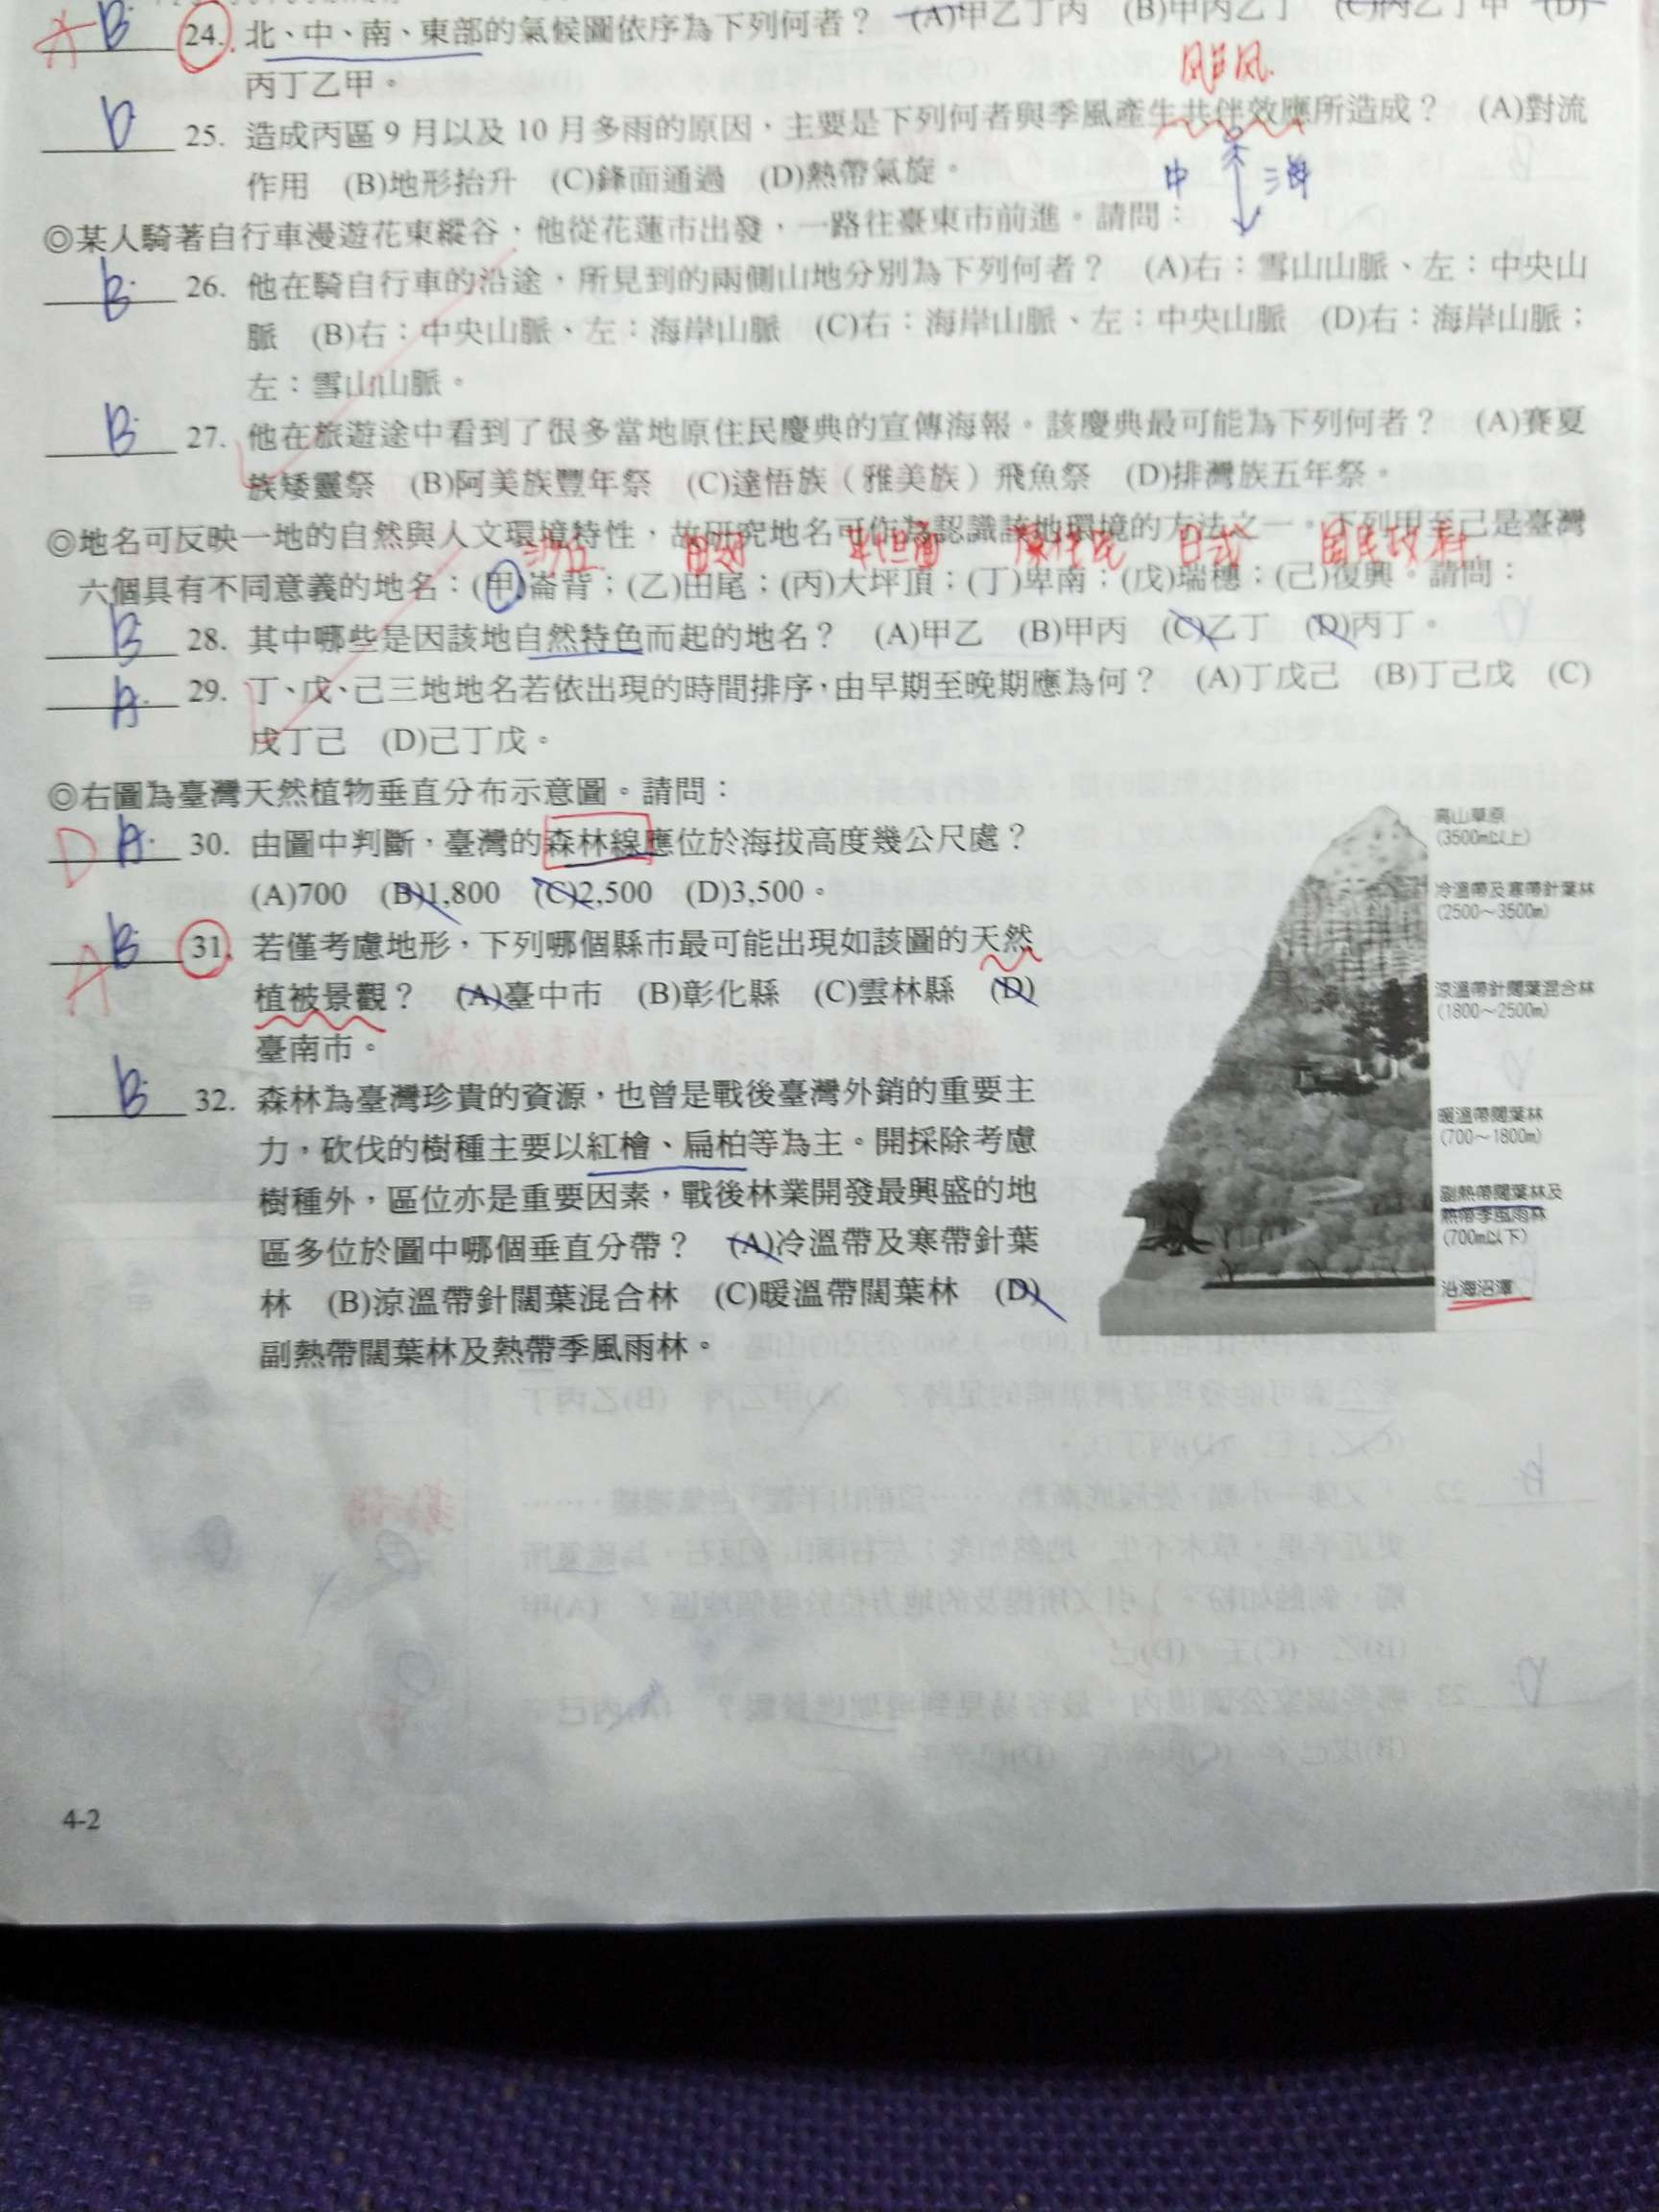 A B 24. 北、中、南、東部的氣候圖依序為下列何者? (A)甲乙丁丙 (B)甲丙乙丁 (C)丙乙丁甲 (D)
丙丁乙甲。
颱风
D 25. 造成丙區9月以及10月多雨的原因,主要是下列何者與季風產生共伴效應所造成? (A)對流
作用 (B)地形抬升 (C)鋒面通過 (D)熱帶氣旋。
中 海
◎某人騎著自行車漫遊花東縱谷,他從花蓮市出發,一路往臺東市前進。請問:
B 26. 他在騎自行車的沿途,所見到的兩側山地分別為下列何者? (A)右:雪山山脈、左:中央山
脈 (B)右:中央山脈、左:海岸山脈 (C)右:海岸山脈、左:中央山脈 (D)右:海岸山脈;
左:雪山山脈。
B 27. 他在旅遊途中看到了很多當地原住民慶典的宣傳海報。該慶典最可能為下列何者? (A)賽夏
族矮靈祭 (B)阿美族豐年祭 (C)達悟族(雅美族)飛魚祭 (D)排灣族五年祭。
◎地名可反映一地的自然與人文環境特性,故研究地名可作為認識該地環境的方法之一。下列甲至己是臺灣
原住民 日式 國民政府
六個具有不同意義的地名:(甲)崙背;(乙)田尾;(丙)大坪頂;(丁)卑南;(戊)瑞穗;(己)復興。請問:
B 28. 其中哪些是因該地自然特色而起的地名? (A)甲乙 (B)甲丙 (C)乙丁 (D)丙丁。
A 29. 丁、戊、己三地地名若依出現的時間排序,由早期至晚期應為何? (A)丁戊己 (B)丁己戊 (C)
戊丁己 (D)己丁戊。
◎右圖為臺灣天然植物垂直分布示意圖。請問:
D A 30. 由圖中判斷,臺灣的森林線應位於海拔高度幾公尺處?
(A)700 (B)1,800 (C)2,500 (D)3,500。
A B 31. 若僅考慮地形,下列哪個縣市最可能出現如該圖的天然
植被景觀? (A)臺中市 (B)彰化縣 (C)雲林縣 (D)
臺南市。
B 32. 森林為臺灣珍貴的資源,也曾是戰後臺灣外銷的重要主
力,砍伐的樹種主要以紅檜、扁柏等為主。開採除考慮
樹種外,區位亦是重要因素,戰後林業開發最興盛的地
區多位於圖中哪個垂直分帶? (A)冷溫帶及寒帶針葉
林 (B)涼溫帶針闊葉混合林 (C)暖溫帶闊葉林 (D)
副熱帶闊葉林及熱帶季風雨林。
高山草原
(3500m以上)
冷溫帶及寒帶針葉林
(2500~3500m)
涼溫帶針闊葉混合林
(1800~2500m)
暖溫帶闊葉林
(700~1800m)
副熱帶闊葉林及
熱帶季風雨林
(700m以下)
沿海沼澤
4-2